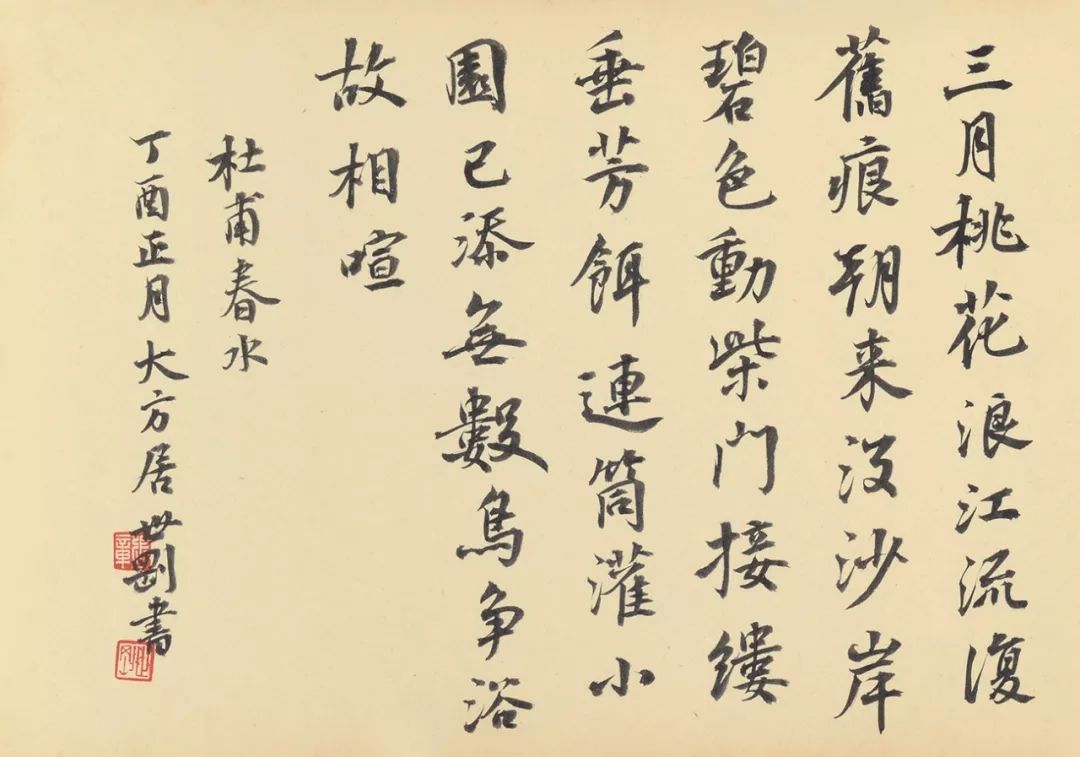 三月桃花浪江流復
舊痕朝来没沙岸
碧色動柴門接縷
垂芳餌連筒灌小
園已添無數鳥争浴
故相喧
杜甫春水
丁酉正月大方居世剛書